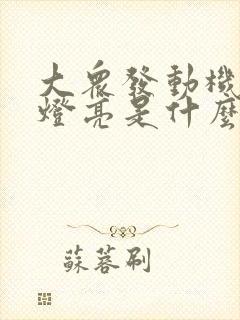 大眾發動機
燈亮是什麼
蘇蓉刷